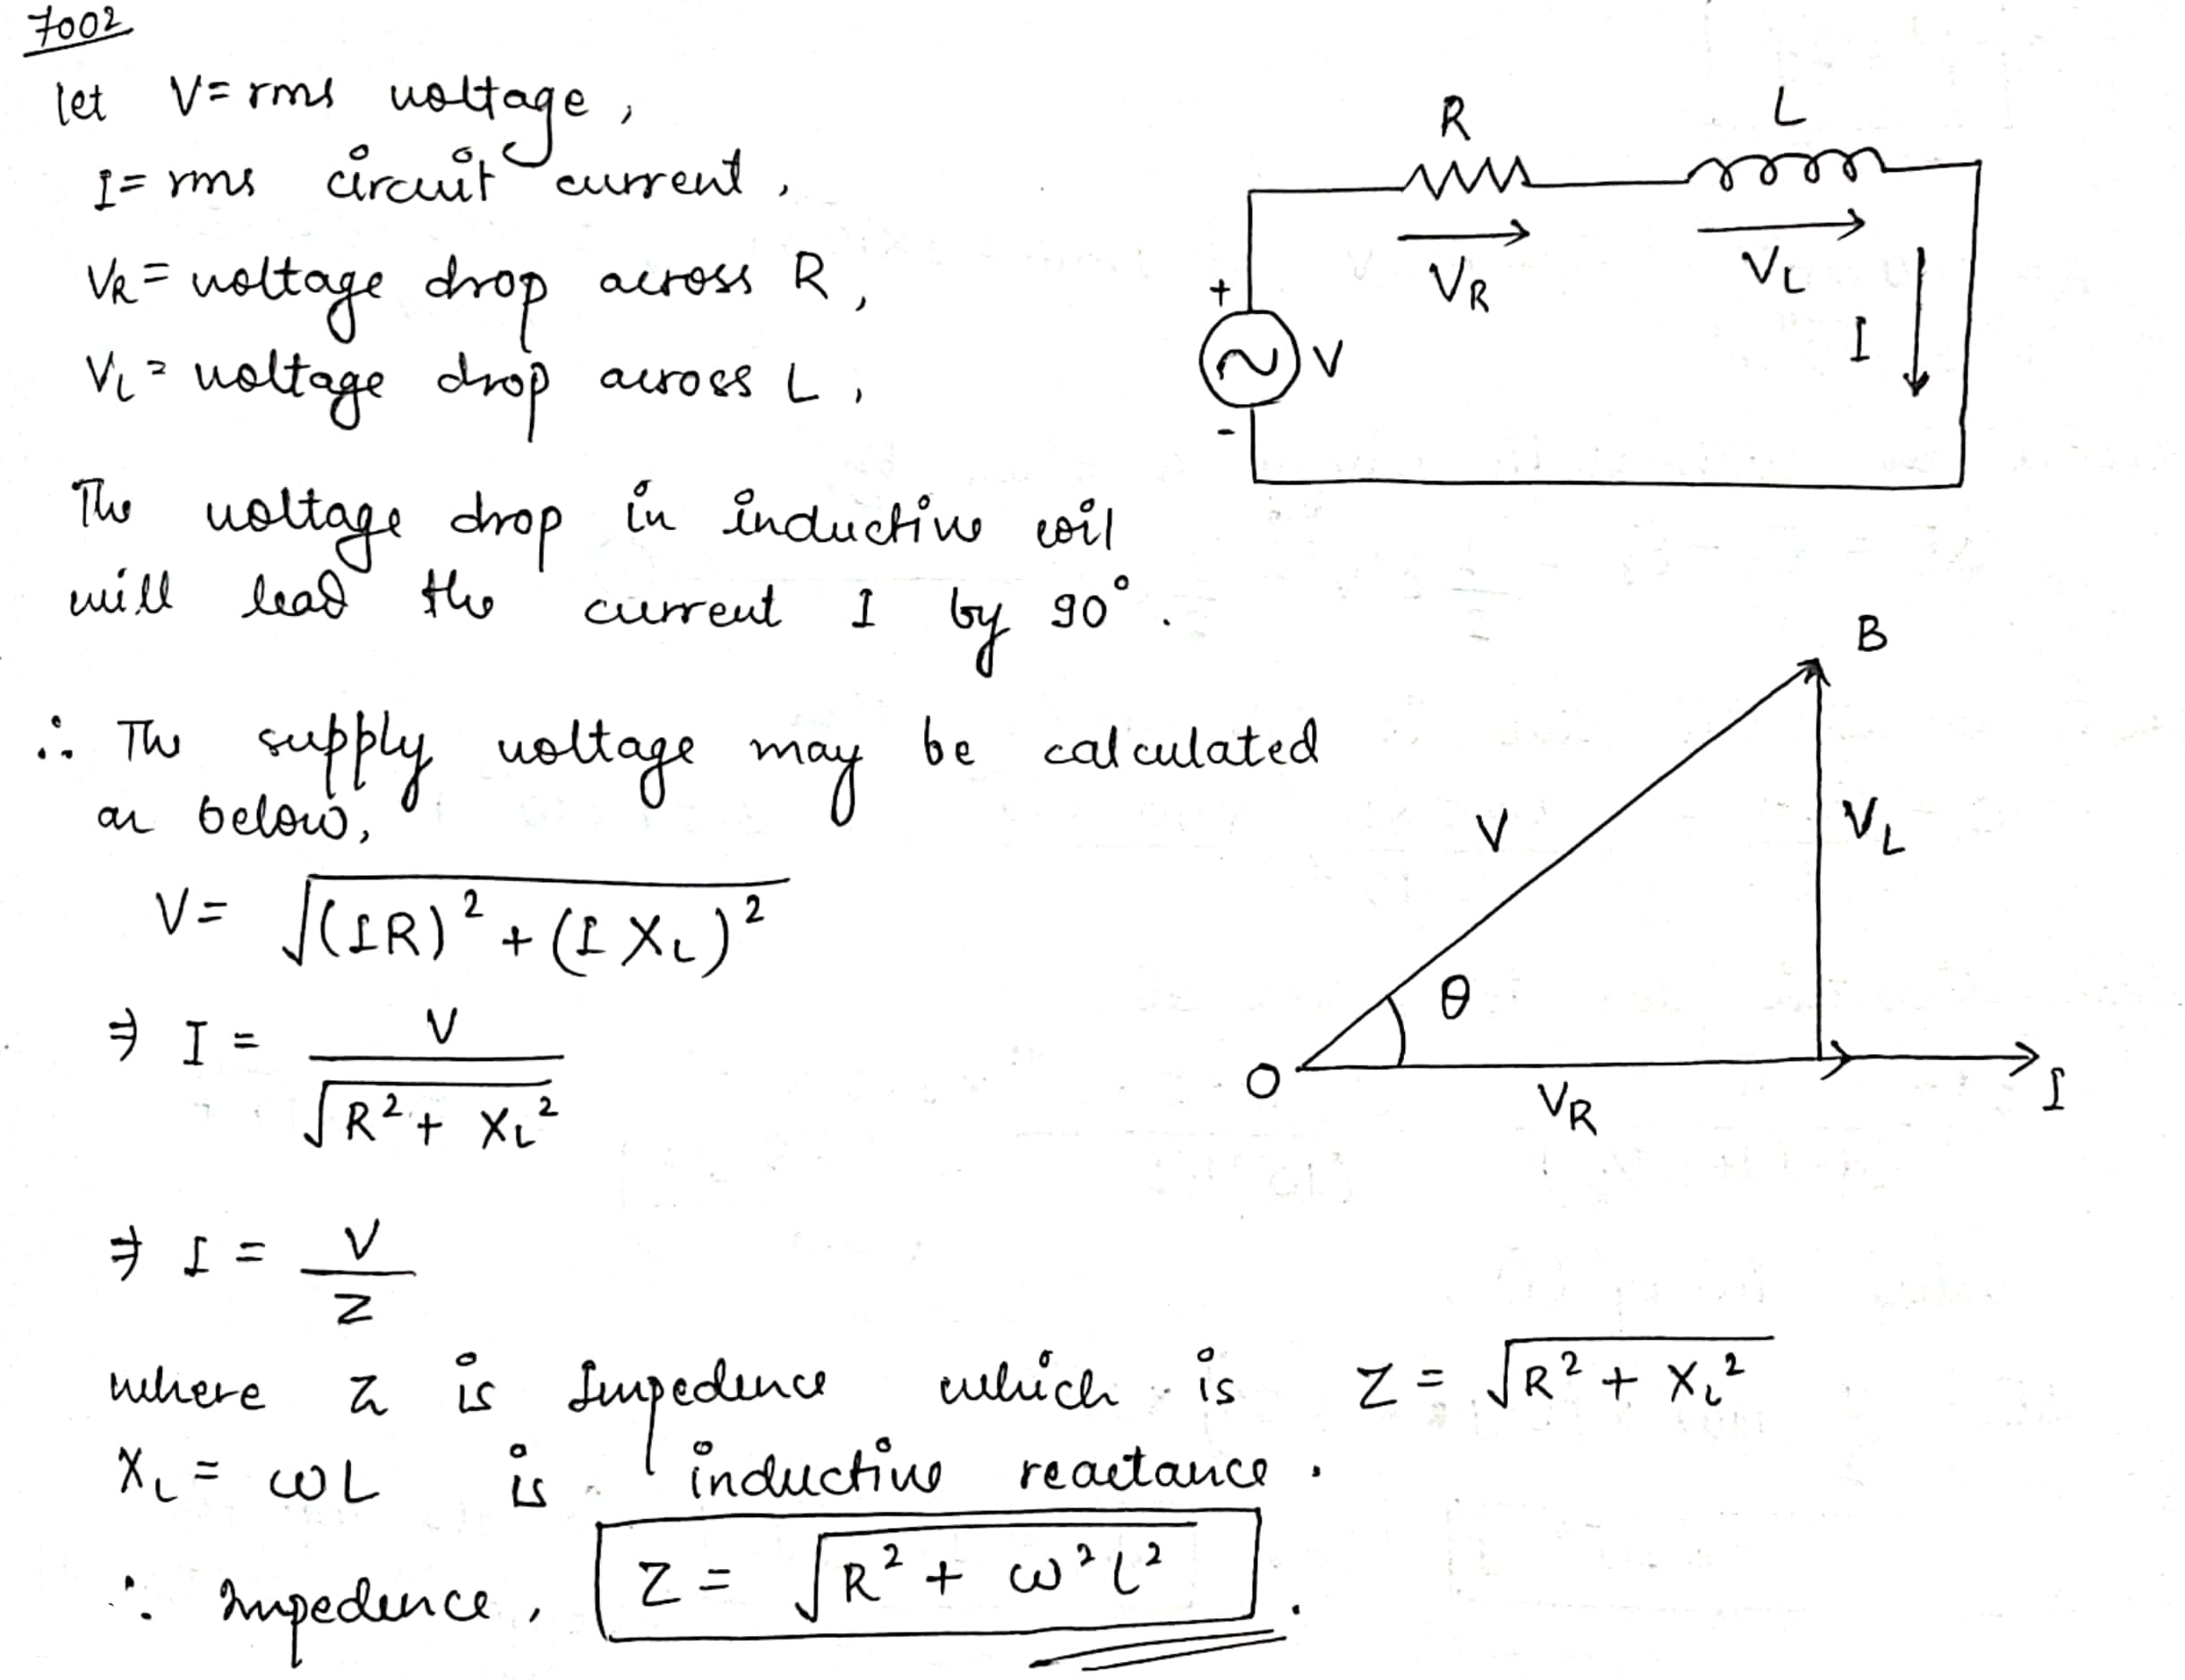 7002
let V = rms voltage,
I = rms circuit current,
VR = voltage drop across R,
VL = voltage drop across L,
R
L
VR
VL
I
+
V
-
The voltage drop in inductive coil
will lead the current I by 90°.
∴ The supply voltage may be calculated
as below,
V = √((IR)² + (I XL)²)
⇒ I = V / √(R² + XL²)
B
V
VL
θ
O
VR
I
⇒ I = V / Z
where Z is Impedence which is Z = √(R² + XL²)
XL = ωL is inductive reactance.
∴ Impedence, Z = √(R² + ω²L²).